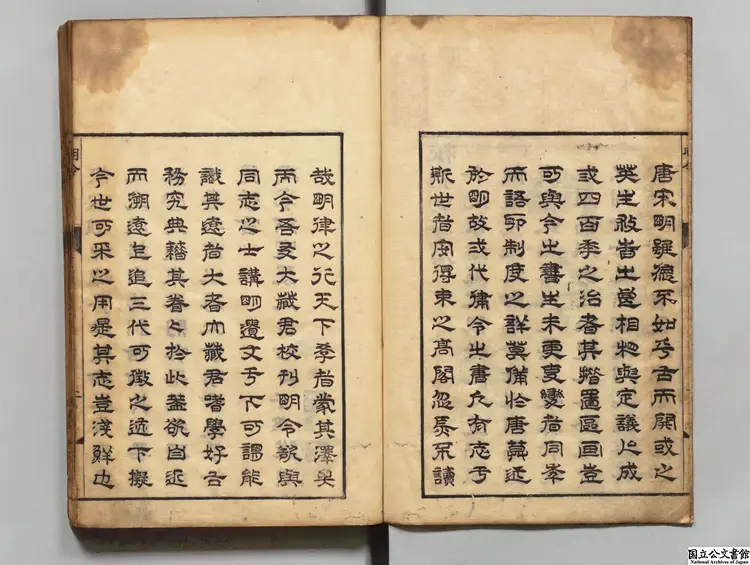 唐宋明雖德不如乎古而開或之
英主相與定議以成
或四百年之治者其措置區画豈
可與今之書生未更事變者同年
而語耶制度之詳莫備於唐莫近
於明故或代律令之書凡有志乎
斯世者安得束之高閣忽焉不讀
哉明律之行天下學者蒙其澤矣
而今吾友大藏君校刊明令欲與
同志之士講明遺文乎下可謂能
識其遠者大者大藏君嗜學好古
務究典籍其眷々於此蓋欲自近
而溯遠上追三代可徵之迹下擬
今世可采之用是其志豈淺鮮也
明令
二
国立公文書館
National Archives of Japan